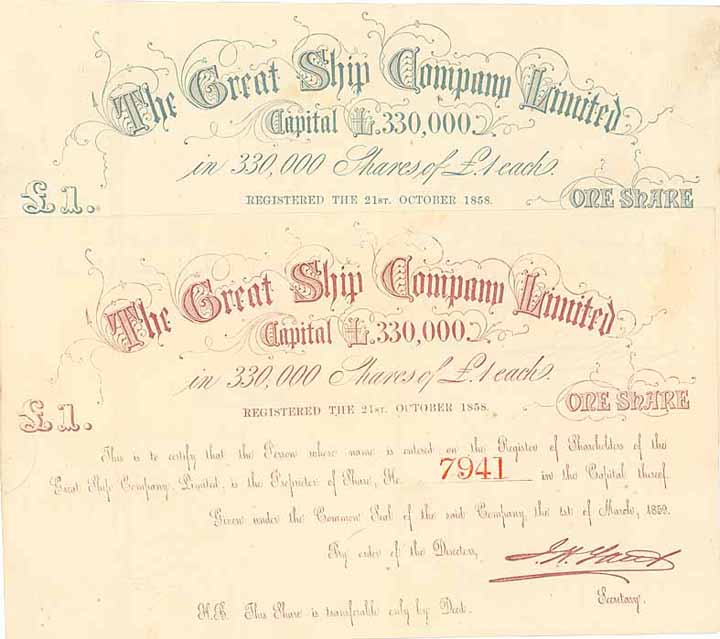 The Great Ship Company Limited
Capital £.330,000.
in 330,000 Shares of £.1 each.
REGISTERED THE 21ST. OCTOBER 1858.
£1.
ONE SHARE
The Great Ship Company Limited
Capital £.330,000.
in 330,000 Shares of £.1 each.
REGISTERED THE 21ST. OCTOBER 1858.
£1.
ONE SHARE
This is to certify that the Person whose name is entered on the Register of Shareholders of the
Great Ship Company Limited, is the Proprietor of Share, No. 7941 in the Capital thereof.
Given under the Common Seal of the said Company, the 1st of March, 1859.
By order of the Directors,
Secretary.
N.B. This Share is transferable only by Deed.